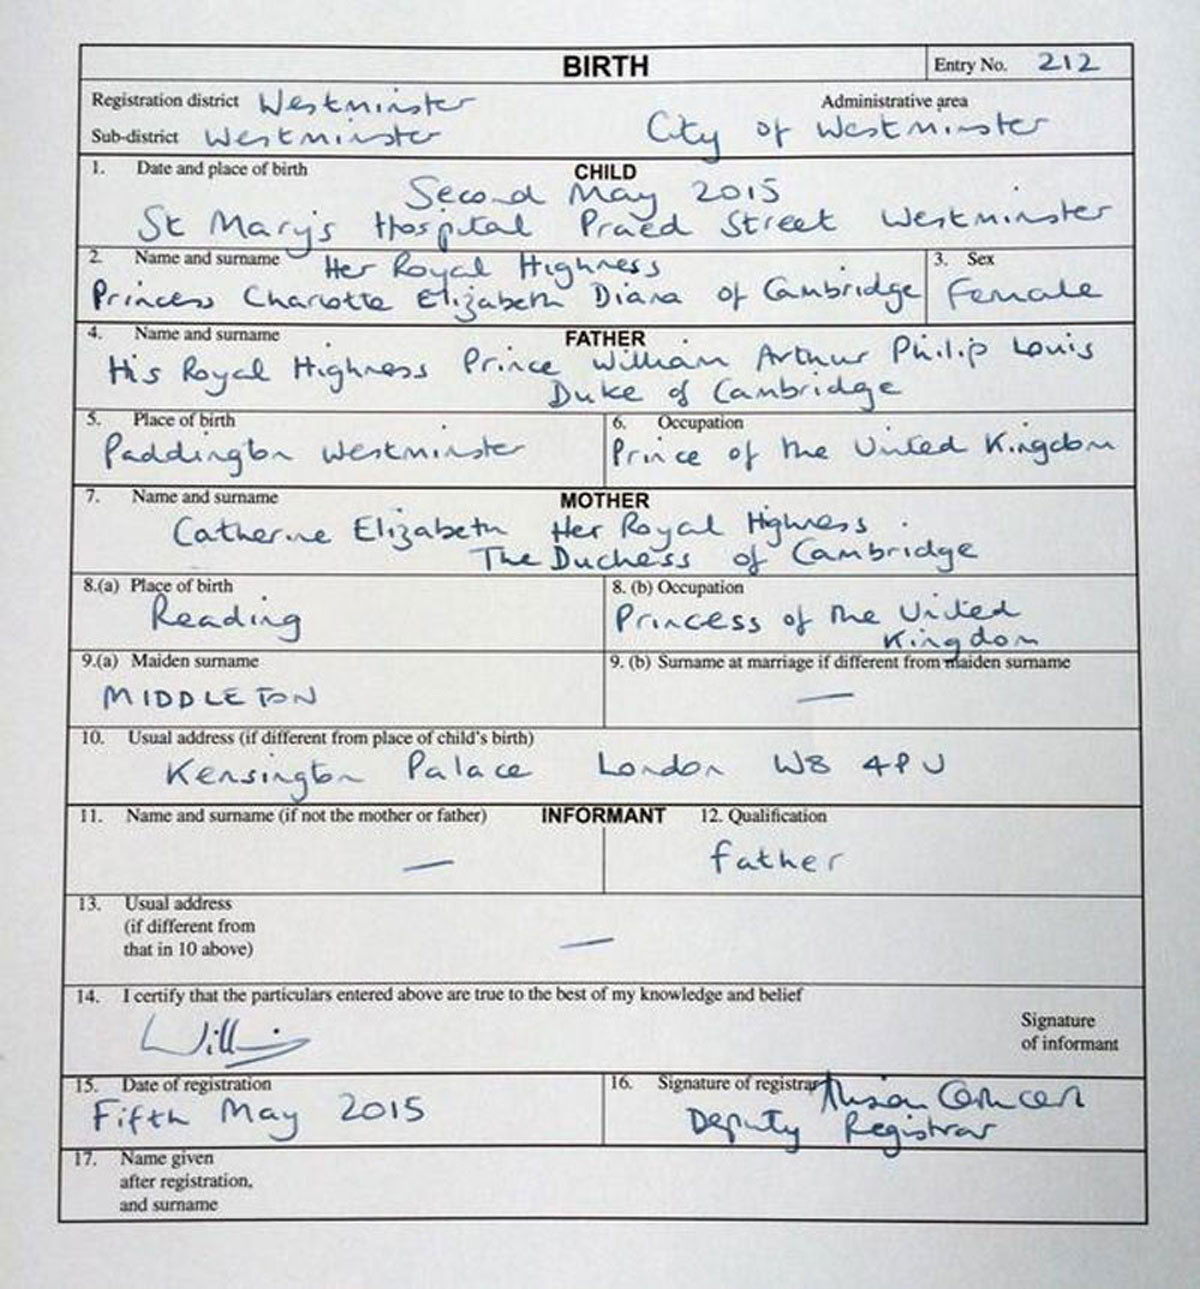 BIRTH Entry No. 212
Registration district Westminster Administrative area
Sub-district Westminster City of Westminster
1. Date and place of birth CHILD
Second May 2015
St Mary's Hospital Praed Street Westminster
2. Name and surname Her Royal Highness 3. Sex
Princess Charlotte Elizabeth Diana of Cambridge Female
4. Name and surname FATHER
His Royal Highness Prince William Arthur Philip Louis
Duke of Cambridge
5. Place of birth 6. Occupation
Paddington Westminster Prince of the United Kingdom
7. Name and surname MOTHER
Catherine Elizabeth Her Royal Highness
The Duchess of Cambridge
8.(a) Place of birth 8. (b) Occupation
Reading Princess of the United
Kingdom
9.(a) Maiden surname 9. (b) Surname at marriage if different from maiden surname
MIDDLETON —
10. Usual address (if different from place of child's birth)
Kensington Palace London W8 4PU
11. Name and surname (if not the mother or father) INFORMANT 12. Qualification
— father
13. Usual address
(if different from
that in 10 above) —
14. I certify that the particulars entered above are true to the best of my knowledge and belief
William Signature
of informant
15. Date of registration 16. Signature of registrar Alison
Fifth May 2015 Deputy Registrar
17. Name given
after registration,
and surname